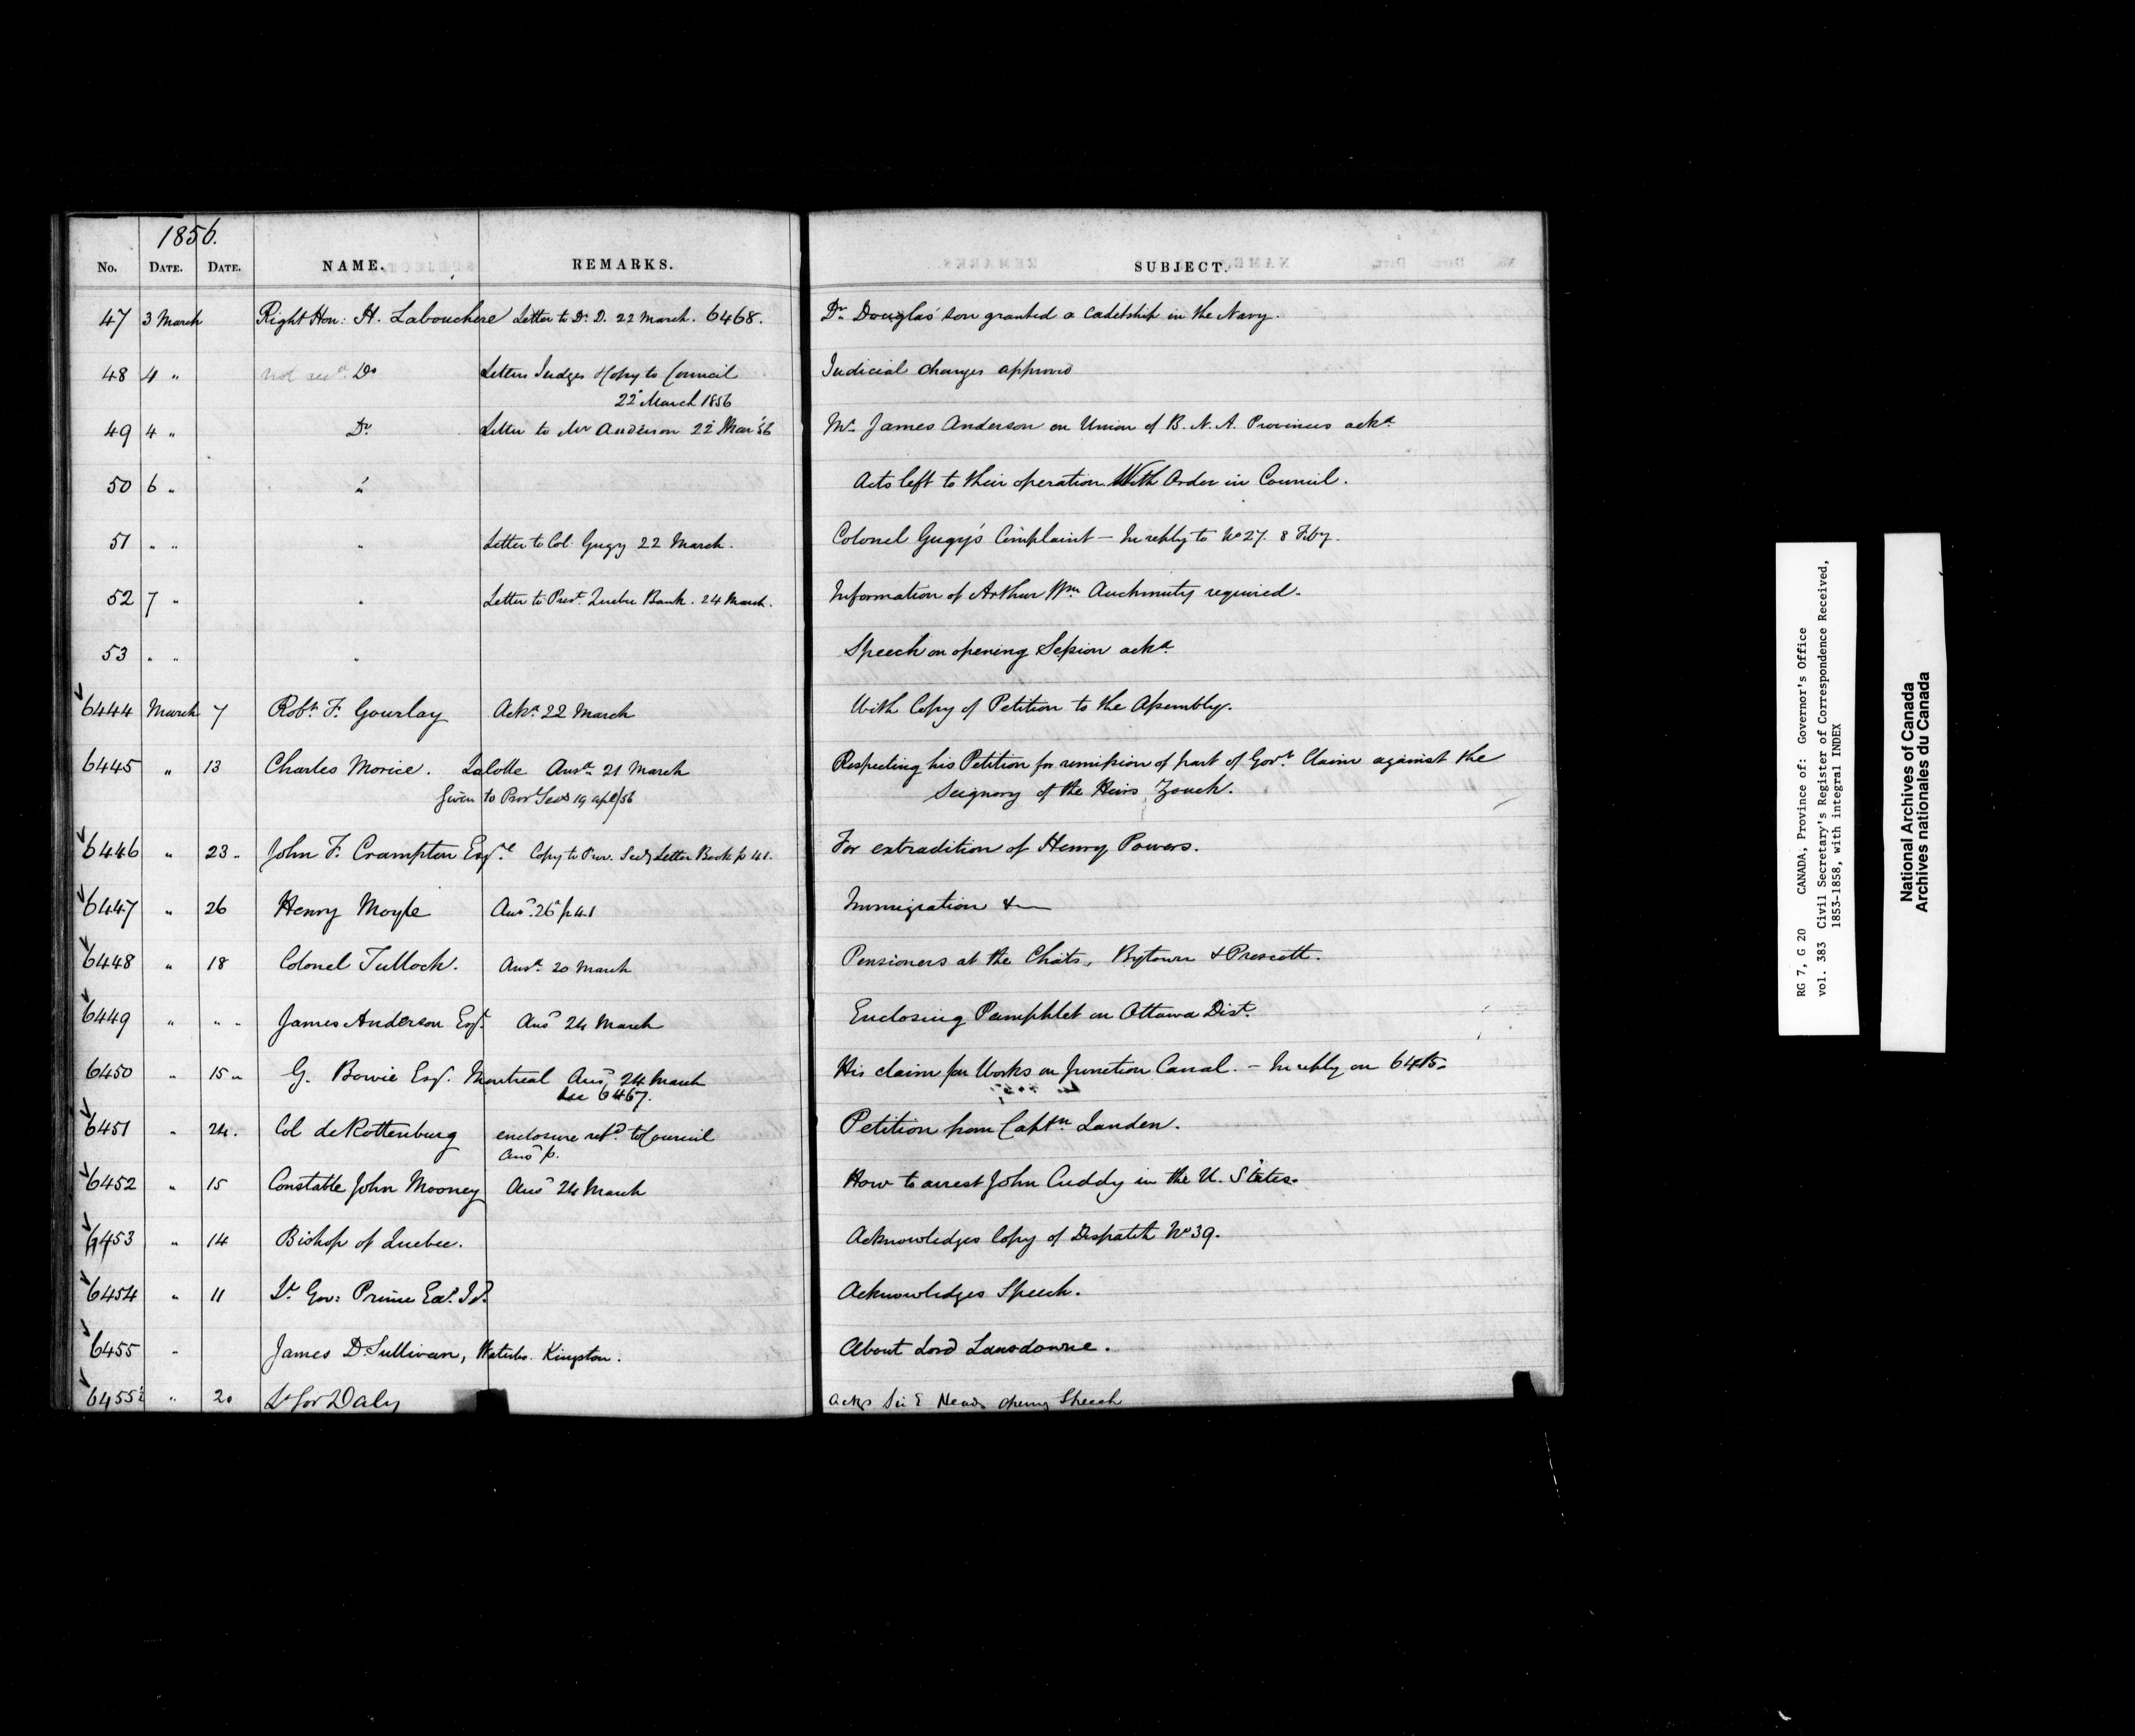 1856.
No. DATE. DATE. NAME. REMARKS. SUBJECT.
47 3 March Right Hon: H. Labouchere Letter to Dr. D. 22 March. 6468. Dr. Douglas' son granted a Cadetship in the Navy.
48 4 " not recd. Do Letters Judges & Copy to Council Judicial changes approved
22 March 1856
49 4 " Do. Letter to Mr Anderson 22 Mar '56 Mr. James Anderson on Union of B. N. A. Provinces ackd.
50 6 " " Acts left to their operation With Order in Council.
51 " " " Letter to Col. Gugy 22 March. Colonel Gugy's Complaint - In reply to No 27. 8 Feby.
52 7 " " Letter to Prest. Quebec Bank. 24 March. Information of Arthur Wm. Auchmuty required.
53 " " " Speech on opening Session ackd.
6444 March 7 Robt. F. Gourlay Ackd. 22 March With Copy of Petition to the Assembly.
6445 " 13 Charles Morice. Lacolle Ansd. 21 March Respecting his Petition for remission of part of Govt. Claim against the
Given to Prov Secy 19 apl/56 Seignory of the Heirs Zouch.
6446 " 23 " John F. Crampton Esqre. Copy to Prov. Secy Letter Book p 41. For extradition of Henry Powers.
6447 " 26 Henry Moyle Ansd. 26 p 41 Immigration &
6448 " 18 Colonel Tulloch. Ansd. 20 March Pensioners at the Chats, Bytown & Prescott.
6449 " " " James Anderson Esqr. Ansd 24 March Enclosing Pamphlet on Ottawa Dist.
6450 " 15 " G. Bowie Esq. Montreal Ansd 24 March His claim for Works on Junction Canal. - In reply on 6415.
See 6467.
6451 " 24. Col de Rottenburg enclosure retd. to Council Petition from Captn Landen.
Ansd p.
6452 " 15 Constable John Mooney Ansd 24 March How to arrest John Cuddy in the U. States.
6453 " 14 Bishop of Quebec. Acknowledges Copy of Despatch No 39.
6454 " 11 Lt. Gov: Prince Ed. Id. Acknowledges Speech.
6455 " James D. Sullivan, Waterloo. Kingston. About Lord Lansdowne.
6455½ " 20 Lt Gov Daly Acks Sir E Heads opening Speech
RG 7, G 20 CANADA, Province of: Governor's Office
vol. 383 Civil Secretary's Register of Correspondence Received,
1853-1858, with integral INDEX
National Archives of Canada
Archives nationales du Canada